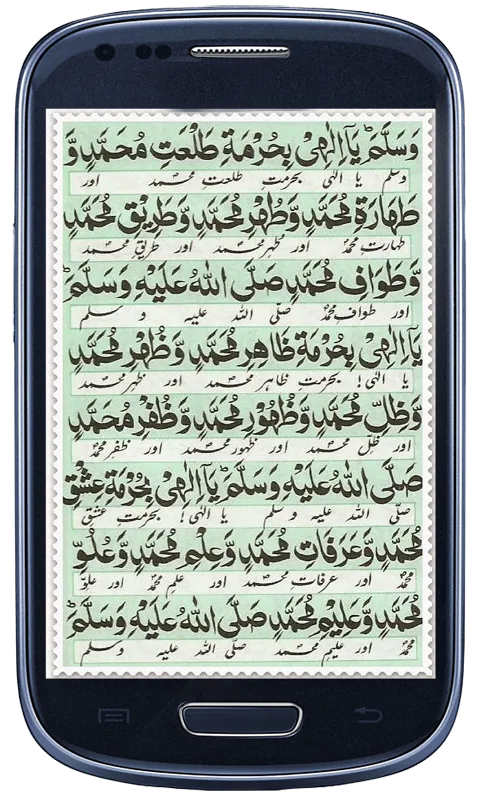 وَسَلَّمَ ؕ يَآ اِلٰهِىْ بِحُرْمَةِ طَلْعَتِ مُحَمَّدٍ وَّ
وسلم یا الٰہی بحرمتِ طلعتِ محمد اور
طَهَارَةِ مُحَمَّدٍ وَّطُهْرِ مُحَمَّدٍ وَّطَرِيْقِ مُحَمَّدٍ
طہارتِ محمدؐ اور طہرِ محمد اور طریقِ محمد
وَّطَوَافِ مُحَمَّدٍ صَلَّى اللهُ عَلَيْهِ وَسَلَّمَ ؕ
اور طوافِ محمدؐ صلی اللہ علیہ و سلم
يَآ اِلٰهِىْ بِحُرْمَةِ ظَاهِرِ مُحَمَّدٍ وَّظُهْرِ مُحَمَّدٍ
یا الٰہی! بحرمتِ ظاہرِ محمد اور ظہرِ محمد
وَّظِلِّ مُحَمَّدٍ وَّظُهُوْرِ مُحَمَّدٍ وَّظُفْرِ مُحَمَّدٍ
اور ظلِ محمد اور ظہورِ محمد اور ظفرِ محمدؐ
صَلَّى اللهُ عَلَيْهِ وَسَلَّمَ ؕ يَآ اِلٰهِىْ بِحُرْمَةِ عِشْقِ
صلی اللہ علیہ و سلم یا الٰہی! بحرمتِ عشقِ
مُحَمَّدٍ وَّعَرَفَاتِ مُحَمَّدٍ وَّعِلْمِ مُحَمَّدٍ وَّعُلُوِّ
محمدؐ اور عرفاتِ محمد اور علمِ محمدؐ اور علوِ
مُحَمَّدٍ وَّعَلِيْمِ مُحَمَّدٍ صَلَّى اللهُ عَلَيْهِ وَسَلَّمَ ؕ
محمدؐ اور علیمِ محمد صلی اللہ علیہ وسلم